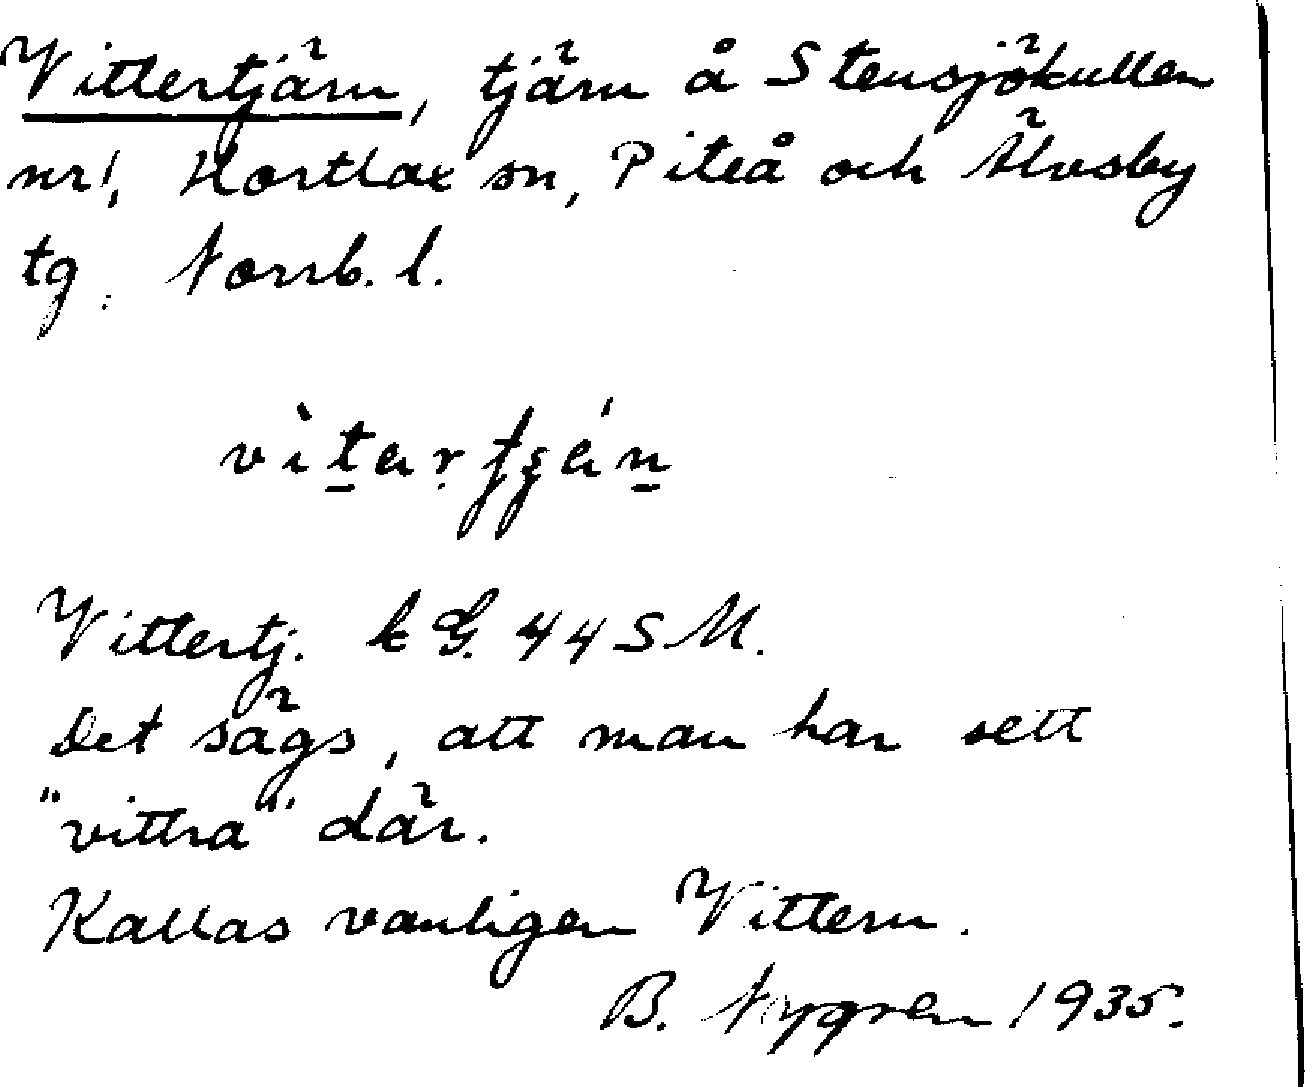 Vittertjärn, tjärn å Stensjökullen
nr 1, Hortlax sn, Piteå och Älvsby
tg. Norrb. l.
Vittertj. k G. 44 S M.
Det sägs, att man har sett
"vittra" där.
Kallas vanligen Vittern.
B. Nygren 1935.